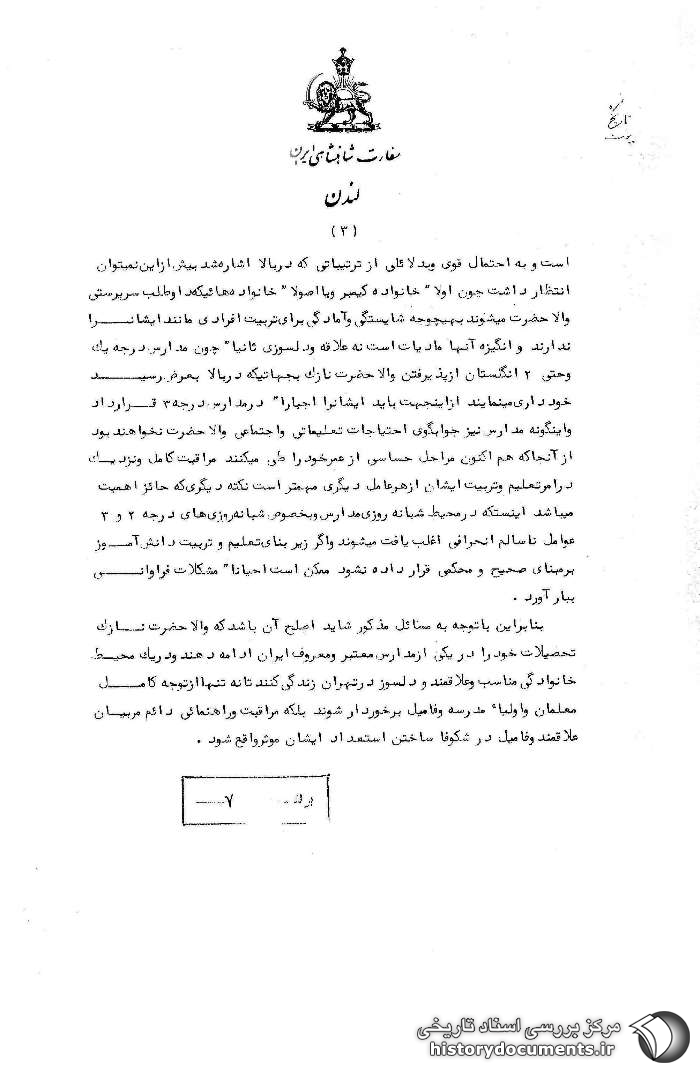 تاریخ
پیوست
سفارت شاهنشاهی ایران
لندن
(۳)
است و به احتمال قوی وبدلائلی از ترتیباتی که دربالا اشاره شد بیش از این نمیتوان
انتظار داشت چون اولا" خانواده کیمبر ویا اصولا" خانواده هائیکه داوطلب سرپرستی
والا حضرت میشوند بهیچوجه شایستگی وآمادگی برای تربیت افرادی مانند ایشانرا
ندارند و انگیزه آنها مادیات است نه علاقه ودلسوزی ثانیا" چون مدارس درجه یك
وحتی ۲ انگلستان از پذیرفتن والا حضرت نازك بجهاتیکه دربالا بعرض رسید
خود داری مینمایند از اینجهت باید ایشانرا اجبارا" در مدارس درجه ۳ قرار داد
واینگونه مدارس نیز جوابگوی احتیاجات تعلیماتی واجتماعی والا حضرت نخواهند بود
از آنجا که هم اکنون مراحل حساسی از عمر خود را طی میکنند مراقبت کامل ونزدیك
در امر تعلیم وتربیت ایشان از هر عامل دیگری مهمتر است نکته دیگری که حائز اهمیت
میباشد اینستکه در محیط شبانه روزی مدارس وبخصوص شبانه روزی های درجه ۲ و ۳
عوامل ناسالم انحرافی اغلب یافت میشوند واگر زیر بنای تعلیم و تربیت دانش آموز
بر مبنای صحیح و محکمی قرار داده نشود ممکن است احیانا" مشکلات فراوانی
ببار آورد .
بنابراین باتوجه به مسائل مذکور شاید اصلح آن باشد که والا حضرت نازك
تحصیلات خود را در یکی از مدارس معتبر ومعروف ایران ادامه دهند ودریك محیط
خانوادگی مناسب وعلاقمند و دلسوز درتهران زندگی کنند تا نه تنها از توجه کامل
معلمان واولیاء مدرسه وفامیل برخوردار شوند بلکه مراقبت وراهنمائی دائم مربیان
علاقمند وفامیل در شکوفا ساختن استعداد ایشان موثر واقع شود .
۷
مرکز بررسی اسناد تاریخی
historydocuments.ir